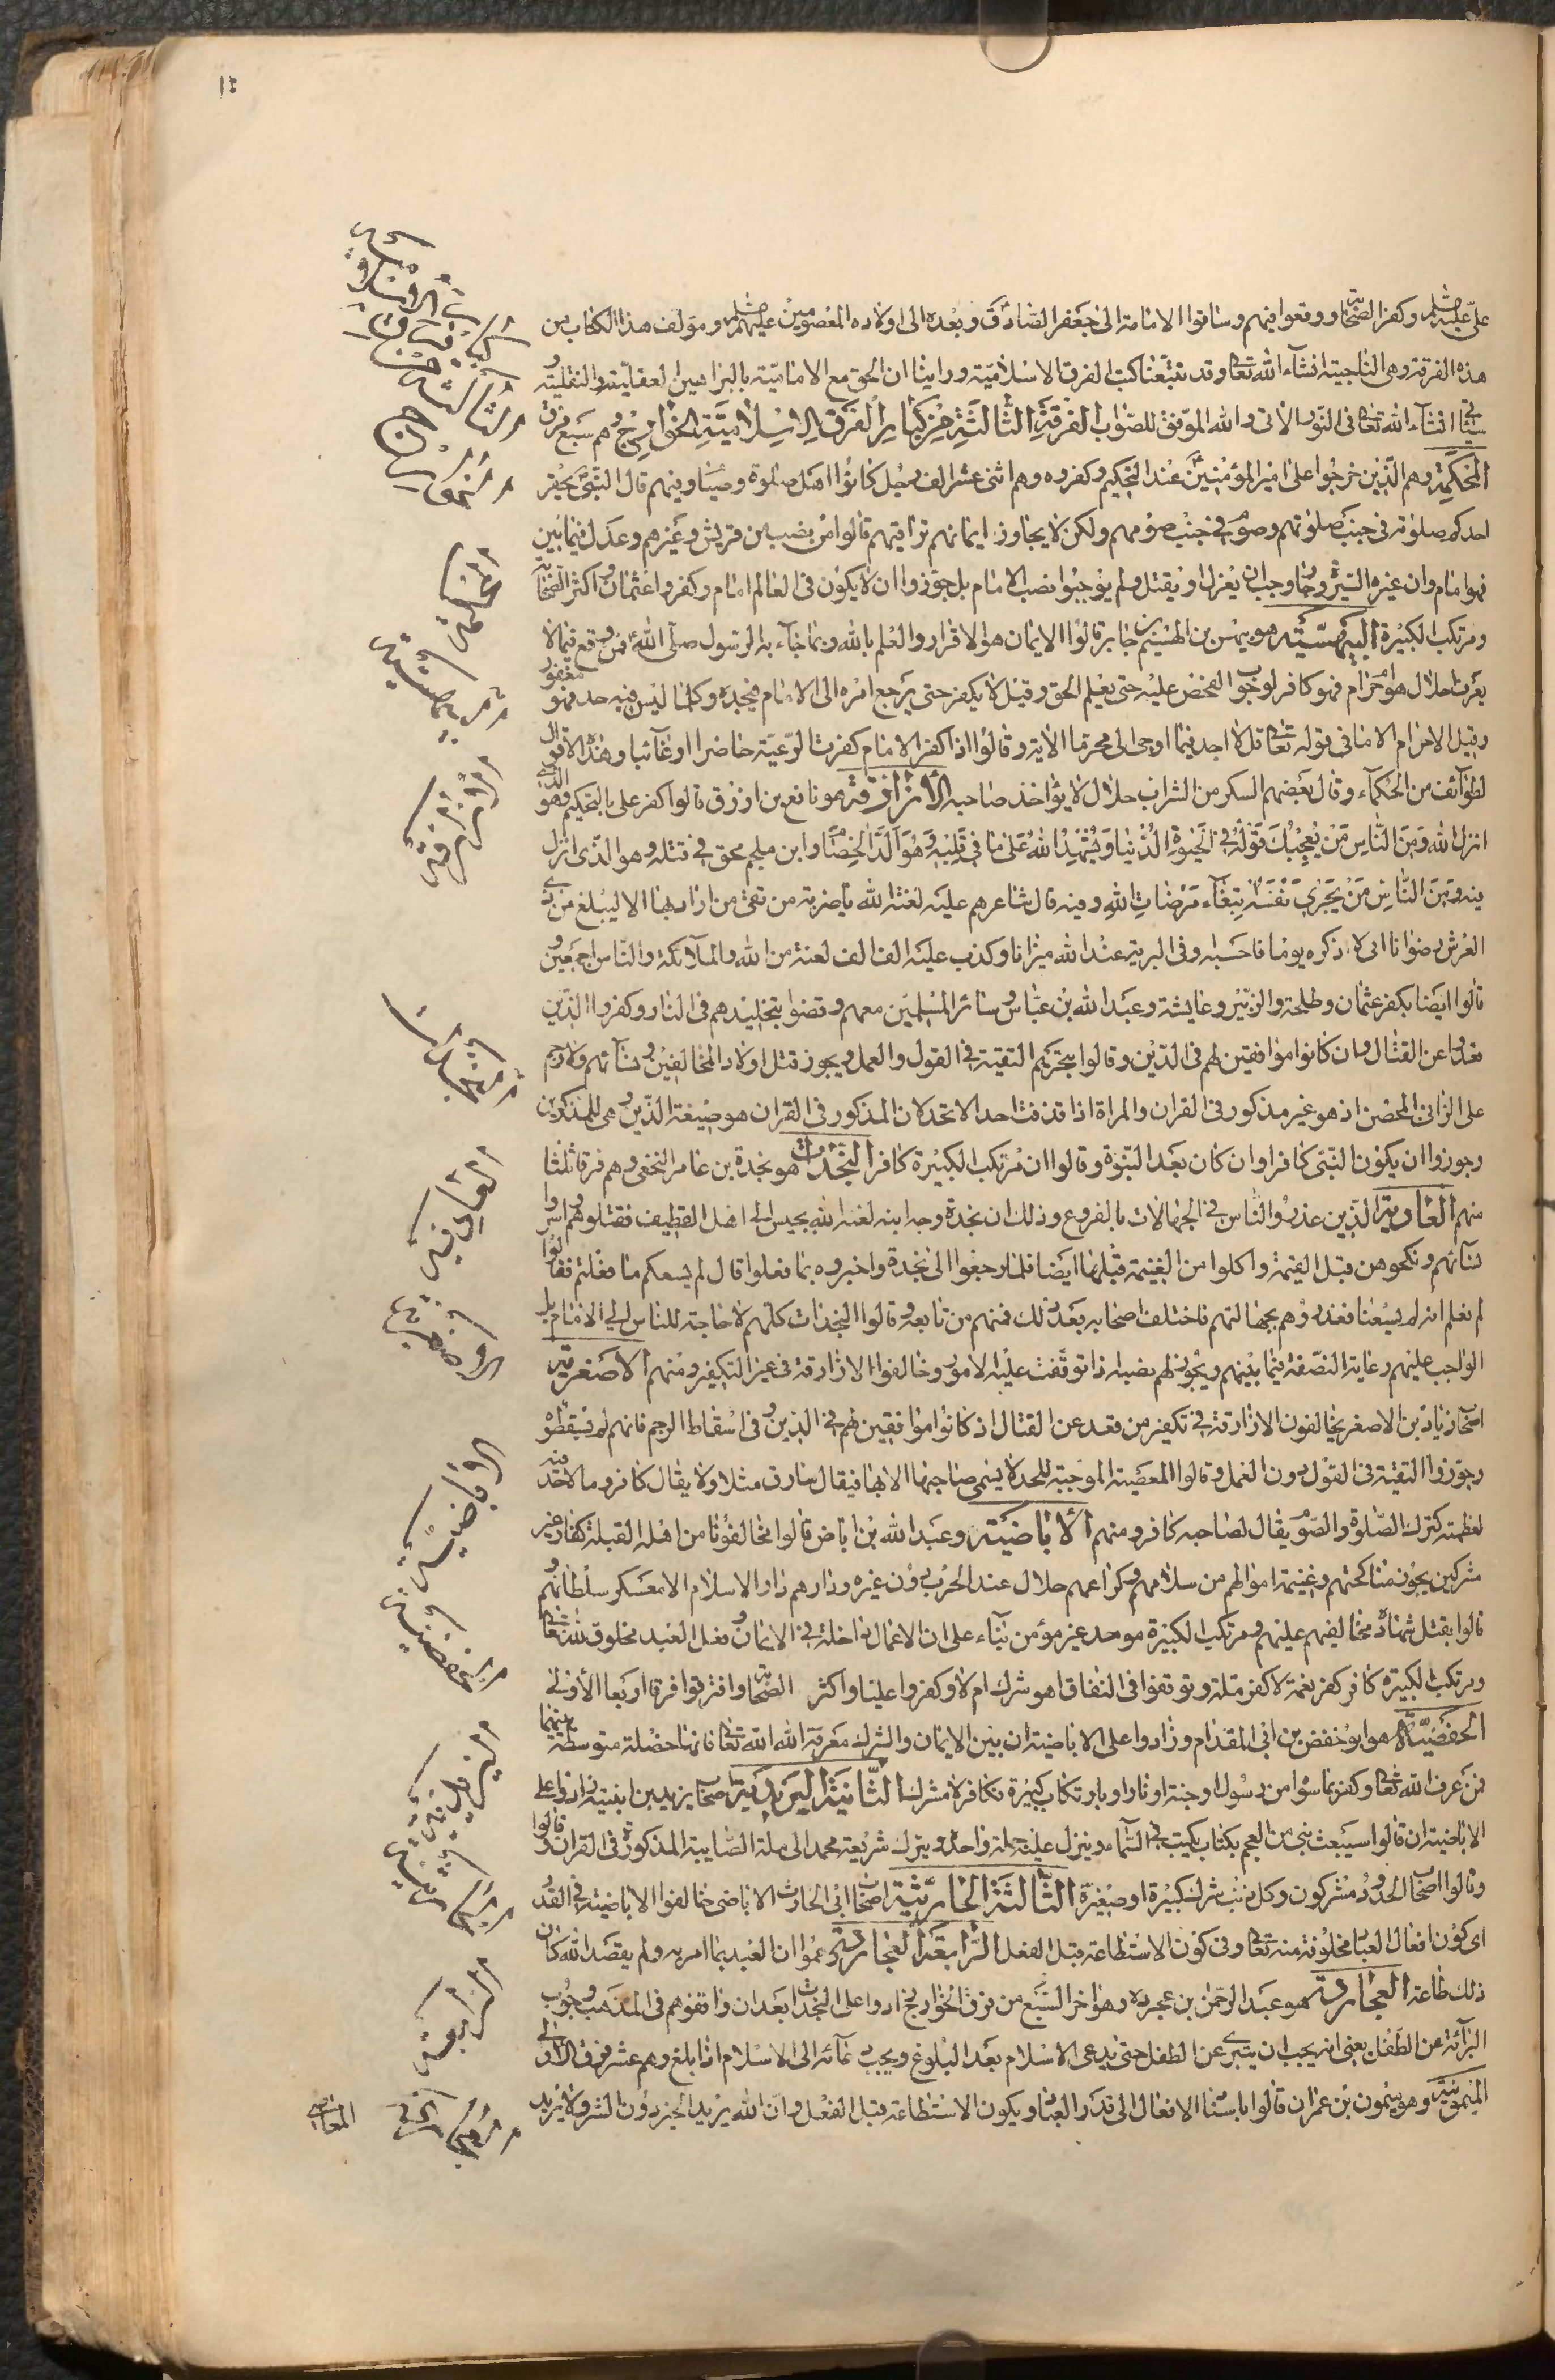 على عليه السلم وكفر الصحابة ووقعوا فيهم وساقوا الامامة الى جعفر الصادق وبعده الى اولاده المعصومين عليهم السلم ومؤلف هذا الكتاب من
هذه الفرقة وهى الناجية انشاء الله تعالى وقد تتبعنا كتب الفرق الاسلامية وراينا ان الحق مع الامامية بالبراهين العقلية والنقلية و
سياتى انشاء الله تعالى فى النور الاتى والله الموفق للصواب الفرقة الثالثة من كبار الفرق الاسلامية الخوارج وهم سبع فرق
المحكمة وهم الذين خرجوا على امير المؤمنين عند التحكيم وكفروه وهم اثنى عشر الف رجل كانوا اهل صلوة وصيام وفيهم قال النبى يحقر
احدكم صلوته فى جنب صلوتهم وصومه فى جنب صومهم ولكن لا يجاوز ايمانهم تراقيهم قالوا من نصب من قريش وغيرهم وعدل فيما بين
فهو امام وان غير السيرة وجار وجب ان يعزل او يقتل ولم يوجبوا نصب الامام بل جوزوا ان لا يكون فى العالم امام وكفروا عثمان واكثر الصحابة
ومرتكب الكبيرة البيهسية هو بيهس بن الهيثم بن جابر قالوا الايمان هو الاقرار والعلم بالله وبما جاء به الرسول صلى الله فمن وقع فيما لا
يعرف احلال هو ام حرام فهو كافر لوجوب الفحص عليه حتى يعلم الحق وقيل لا يكفر حتى يرجع امره الى الامام فيحده وكلما ليس فيه حد فهو مغفور
وقيل لا حرام الا ما فى قوله تعالى قل لا اجد فيما اوحى الى محرما الاية وقالوا اذا كفر الامام كفرت الرعية حاضرا او غائبا وهذه الاقوال
لطوائف من الحكماء وقال بعضهم السكر من الشراب حلال لا يؤاخذ صاحبه الازارقة هو نافع بن ازرق قالوا كفر على بالتحكيم وهو الذى
انزل الله ومن الناس من يعجبك قوله فى الحيوة الدنيا ويشهد الله على ما فى قلبه وهو الد الخصام وابن ملجم محق فى قتله وهو الذى انزل
فيه ومن الناس من يشرى نفسه ابتغاء مرضات الله وفيه قال شاعرهم عليه لعنة الله يا ضربة من تقى من اراد بها الا ليبلغ من ذى
العرش رضوانا انى لا اذكره يوما فاحسبه اوفى البرية عند الله ميزانا وكذب عليه الف الف لعنة من الله والملائكة والناس اجمعين و
قالوا ايضا بكفر عثمان وطلحة والزبير وعايشة وعبد الله بن عباس وسائر المسلمين معهم وقضوا بتخليدهم فى النار وكفروا الذين
قعدوا عن القتال وان كانوا موافقين لهم فى الدين وقالوا بتحريم التقية فى القول والعمل ويجوز قتل اولاد المخالفين ونسائهم ولا رجم
على الزانى المحصن اذ هو غير مذكور فى القران والمراة اذا قذفت احدا لا تحد لان المذكور فى القران هو صيغة الذين وهى للمذكرين
وجوزوا ان يكون النبى كافرا وان كان بعد النبوة وقالوا ان مرتكب الكبيرة كافر النجدات هو نجدة بن عامر النخعى وهم فرق ثلثا
منهم العاذرية الذين عذروا الناس فى الجهالات بالفروع وذلك ان نجدة وجه ابنه لعنه الله بجيش الى اهل القطيف فقتلوهم واسروا
نسائهم ونكحوهن قبل القسمة واكلوا من الغنيمة قبلها ايضا فلما رجعوا الى نجدة واخبروه بما فعلوا قال لم يسعكم ما فعلتم فقالوا
لم نعلم انه لم يسعنا فعذرهم بجهالتهم فاختلف اصحابه بعد ذلك فمنهم من تابعه وقالوا النجدات كلهم لا حاجة للناس الى الامام بل
الواجب عليهم رعاية النصفة فيما بينهم ويجوز لهم نصبه اذا توقفت عليه الامور وخالفوا الازارقة فى غير التكفير ومنهم الاصغرية
اصحاب زياد بن الاصغر يخالفون الازارقة فى تكفير من قعد عن القتال اذ كانوا موافقين لهم فى الدين وفى اسقاط الرجم فانهم لم يسقطوه
وجوزوا التقية فى القول دون العمل وقالوا المعصية الموجبة للحد لا يسمى صاحبها الا بها فيقال سارق مثلا ولا يقال كافر وما لا حد فيه
لعظمته كترك الصلوة والصوم يقال لصاحبه كافر ومنهم الاباضية وعبد الله بن اباض قالوا مخالفونا من اهل القبلة كفار غير
مشركين يجوز مناكحتهم وغنيمة اموالهم من سلاحهم وكراعهم حلال عند الحرب دون غيره ودارهم دار الاسلام الا معسكر سلطانهم و
قالوا بقتل شهادة مخالفيهم عليهم ومرتكب الكبيرة موحد غير مؤمن بناء على ان الاعمال داخلة فى الايمان وفعل العبد مخلوق لله تعالى
ومرتكب الكبيرة كافر كفر نعمة لا كفر ملة وتوقفوا فى النفاق اهو شرك ام لا وكفروا عليا واكثر الصحابة وافترقوا فرقا اربعا الاولى
الحفصية هو ابو حفص بن ابى المقدام وزادوا على الاباضية ان بين الايمان والشرك معرفة الله تعالى فانها خصلة متوسطة بينهما
فمن عرف الله تعالى وكفر بما سواه من رسول او جنة او نار او بارتكاب كبيرة فكافر لا مشرك الثانية اليزيدية اصحاب يزيد بن انيسة زادوا على
الاباضية ان قالوا سيبعث نبى من العجم بكتاب يكتب فى السماء وينزل عليه جملة واحدة ويترك شريعة محمد الى ملة الصابية المذكورة فى القران وقالوا
وقالوا اصحاب الحدود مشركون وكل ذنب شرك كبيرة او صغيرة الثالثة الحارثية اصحاب ابى الحارث الاباضى خالفوا الاباضية فى القدر
اى كون افعال العباد مخلوقة منه تعالى وفى كون الاستطاعة قبل الفعل الرابعة العجاردة زعموا ان العبد بما امر به ولم يقصد الله كان
ذلك طاعة العجاردة هو عبد الرحمن بن عجرد وهو اخر السبع من فرق الخوارج زادوا على النجدات بعد ان وافقوهم فى المذهب وجوب
البرائة عن الطفل يعنى انه يجب ان يتبرى عن الطفل حتى يدعى الاسلام بعد البلوغ ويجب دعائه الى الاسلام اذا بلغ وهم عشر فرق الاولى
الميمونية وهو ميمون بن عمران قالوا باسناد الافعال الى قدر العباد ويكون الاستطاعة قبل الفعل وان الله يريد الخير دون الشر ولا يريد
المعاصى
المحكمة
البيهسية
الازارقة
النجدات
العاذرية
الاصغرية
الاباضية
الحفصية
اليزيدية
الحارثية
الرابعة